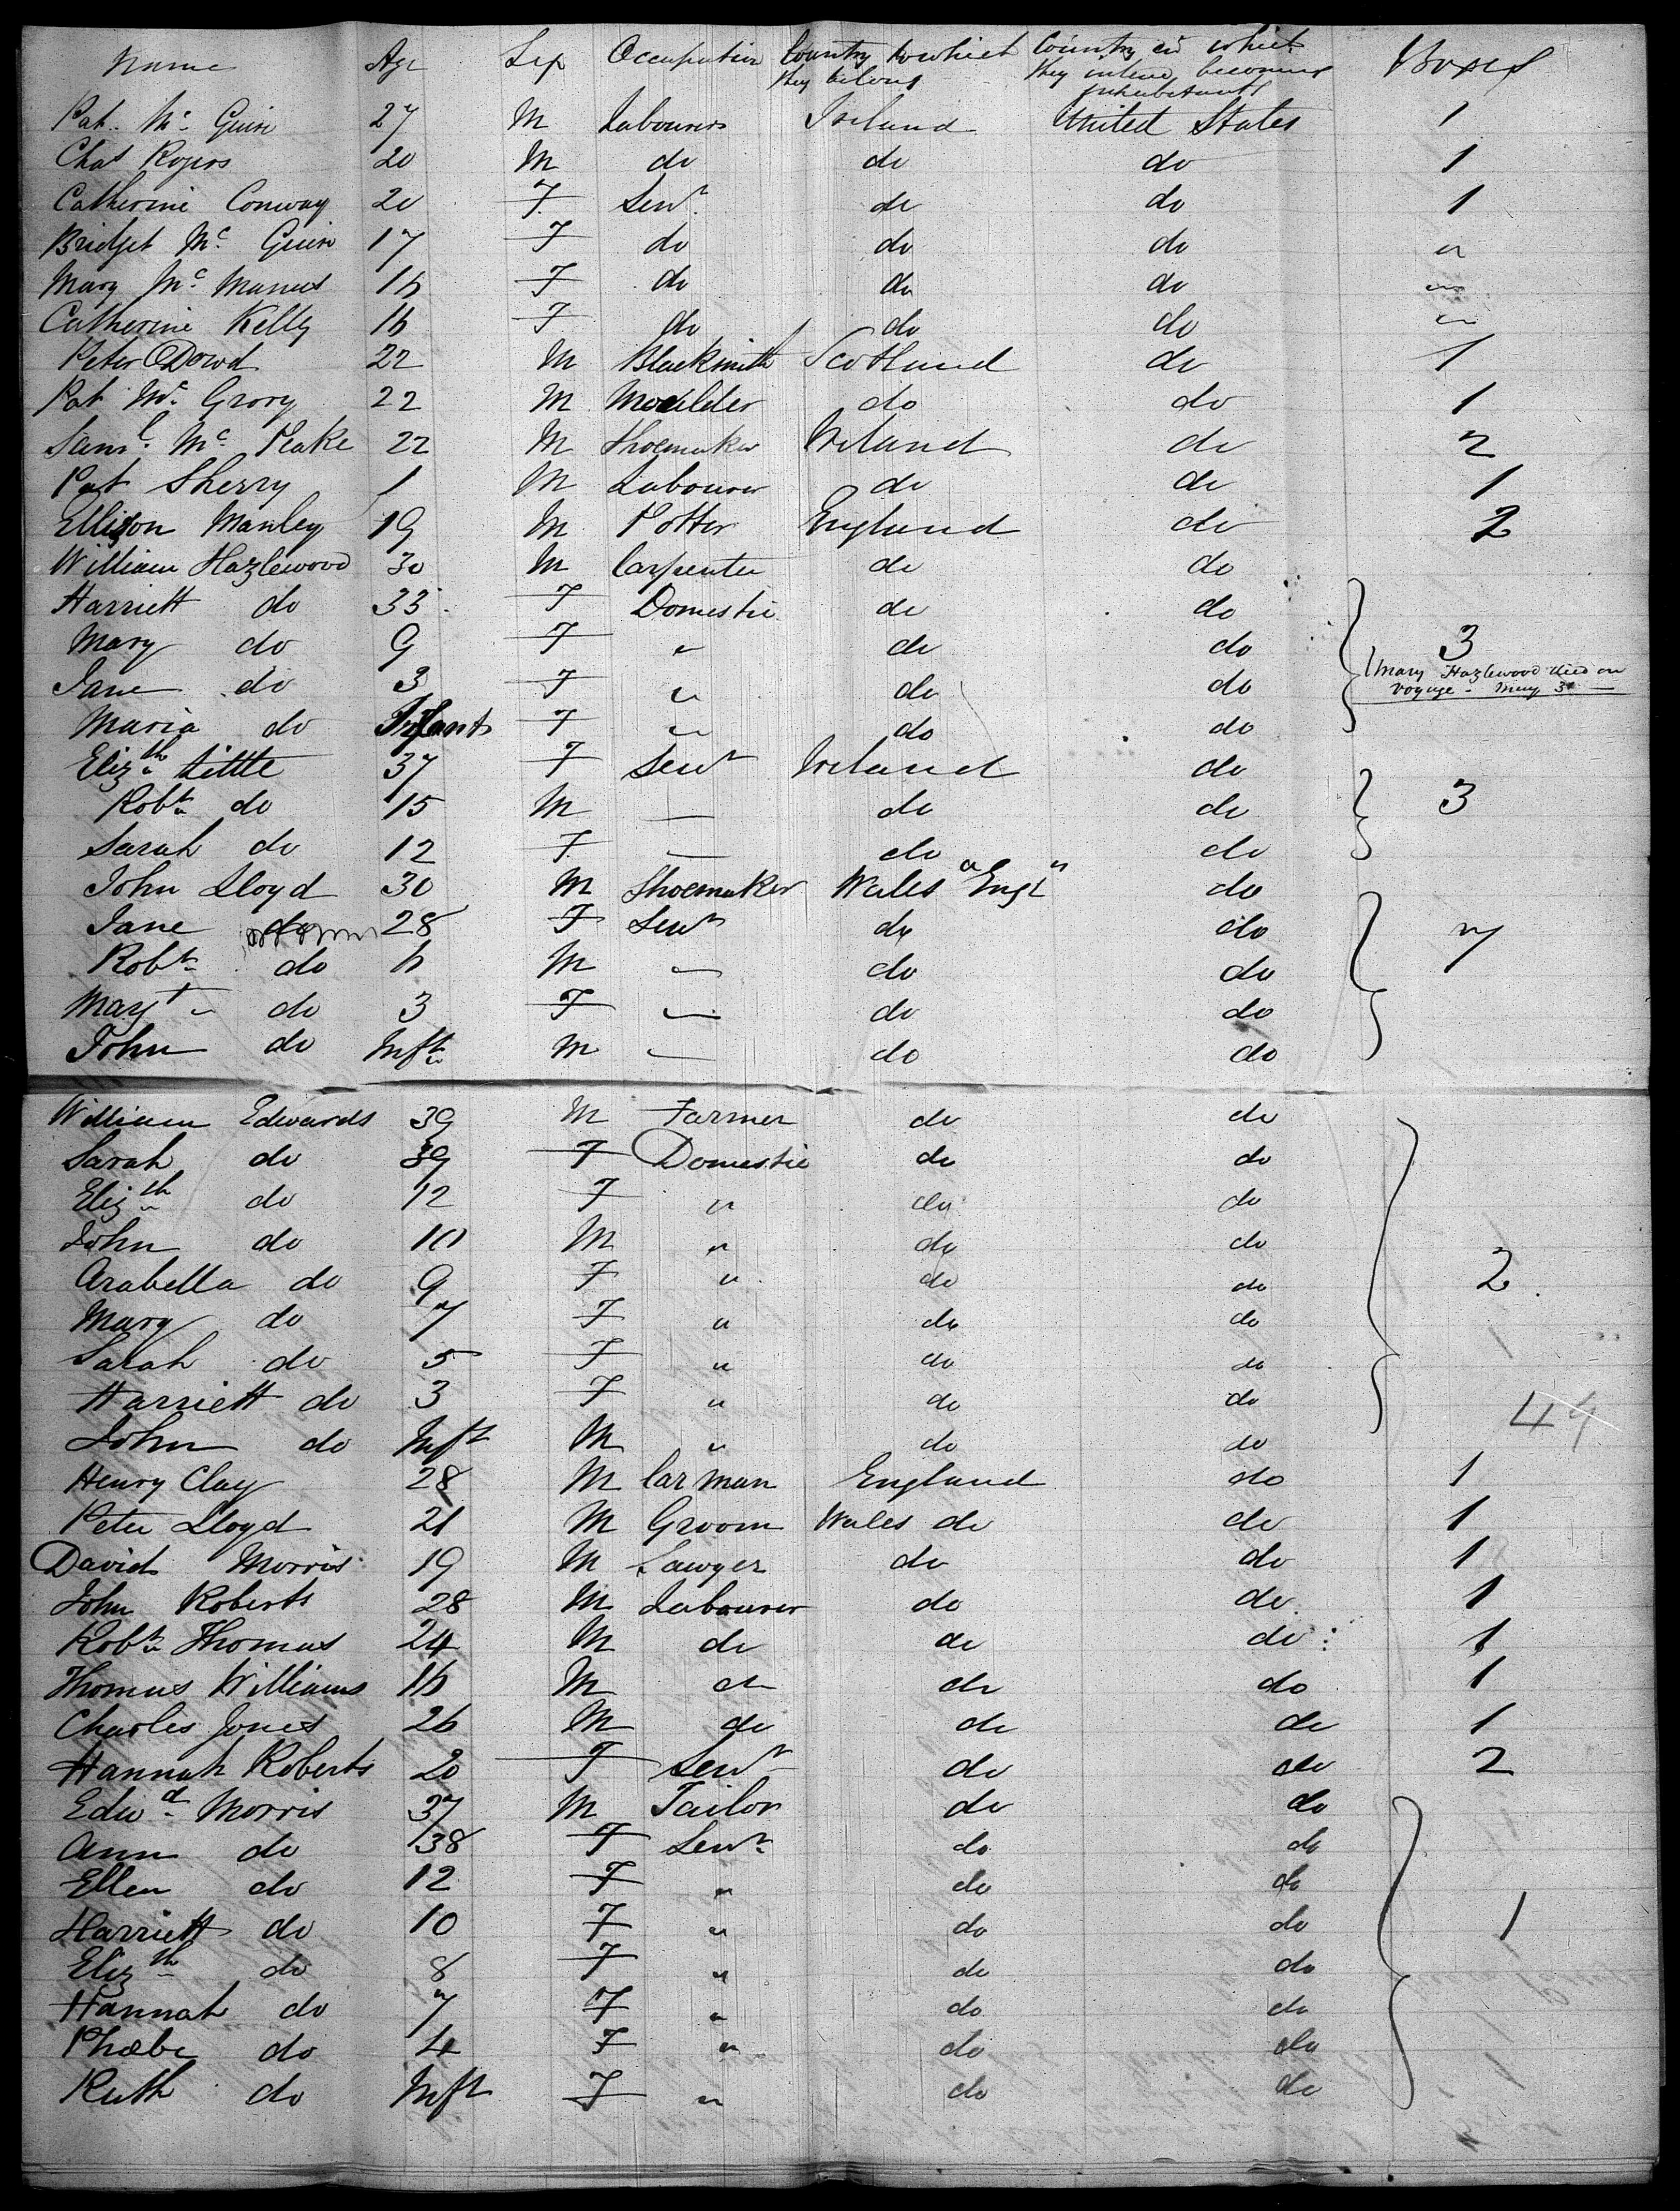 Name Age Sex Occupation Country to which they belong Country in which they intend becoming inhabitants Boxes
Pat. Mc Guire 27 M Labourer Ireland United States 1
Chas Rogers 20 M do do do 1
Catherine Conway 20 F Servt do do 1
Bridget Mc Guire 17 F do do do "
Mary Mc Manus 16 F do do do "
Catherine Kelly 16 F do do do "
Peter ODowd 22 M Blacksmith Scotland do 1
Pat Mc Grory 22 M Moulder do do 1
Saml. Mc Peake 22 M Shoemaker Ireland do 2
Pat Sherry 1 M Labourer do do 1
Ellison Manley 19 M Potter England do 2
William Hazlewood 30 M Carpenter do do
Harriett do 33 F Domestic do do
Mary do 9 F " do do 3
Jane do 3 F " do do Mary Hazlewood died on voyage - May 31
Maria do Infant F " do do
Elizth Little 37 F Servt Ireland do
Robt do 15 M — do do 3
Sarah do 12 F — do do
John Lloyd 30 M Shoemaker Wales "Engd" do
Jane do 28 F Servt do do 7
Robt do 6 M — do do
Mary do 3 F — do do
John do Inft M — do do
William Edwards 39 M Farmer do do
Sarah do 39 F Domestic do do
Elizth do 12 F " do do
John do 10 M " do do
Arabella do 9 F " do do 2
Mary do 7 F " do do
Sarah do 5 F " do do
Harriett do 3 F " do do
44
John do Inft M " do do
Henry Clay 28 M Carman England do 1
Peter Lloyd 21 M Groom Wales do do 1
David Morris 19 M Sawyer do do 1
John Roberts 28 M Labourer do do 1
Robt Thomas 24 M do do do 1
Thomas Williams 16 M do do do 1
Charles Jones 26 M do do do 1
Hannah Roberts 20 F Servt do do 2
Edwd Morris 37 M Tailor do do
Ann do 38 F Servt do do
Ellen do 12 F " do do
Harriett do 10 F " do do 1
Elizth do 8 F " do do
Hannah do 7 F " do do
Phœbe do 4 F " do do
Ruth do Inft F " do do